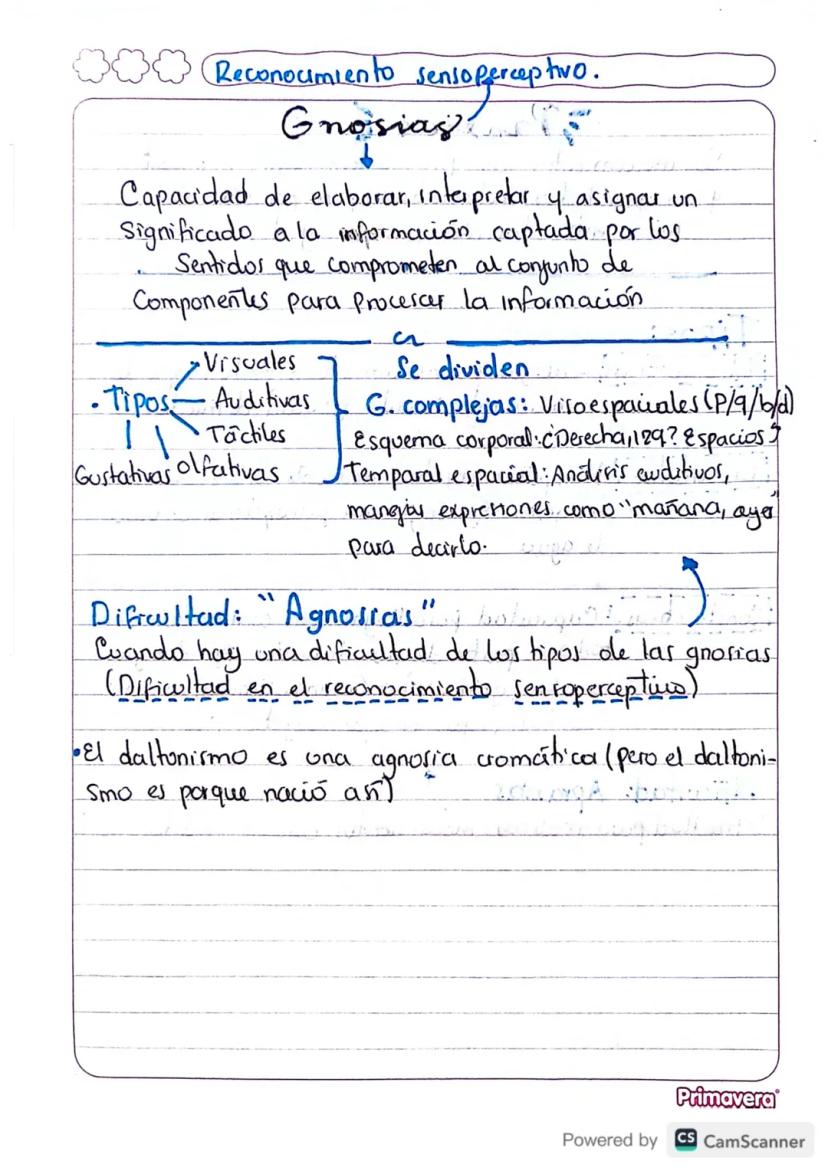 Reconocimiento sensoperceptivo.
Gnosias
Capacidad de elaborar, interpretar y asignar un
Significado a la información captada por los
Sentidos que comprometen al conjunto de
Componentes para Procesar la información
Se dividen
• Tipos
Visuales
Auditivas
Táctiles
Gustativas Olfativas
G. complejas: Visoespaciales (P/q/b/d)
Esquema corporal: ¿Derecha, izq? Espacios
Temporal espacial: Análisis auditivos,
expresiones como "mañana, ayer"
para decirlo.
Dificultad: "Agnosias"
Cuando hay una dificultad de los tipos de las gnosias
(Dificultad en el reconocimiento sensoperceptivo)
• El daltonismo es una agnosia cromática (pero el daltoni-
smo es porque nació así)
Primavera
Powered by CS CamScanner